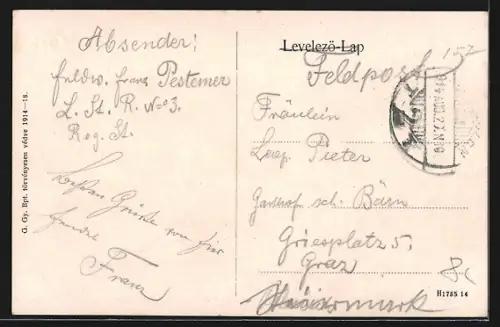 Absender:
Feldw. Franz Pestemer
L. St. R. No 3.
Reg. St.
Besten Grüße von hier
sendet
Franz
G. Gy. Bpt. törvényesen védve 1914—18.
Levelező-Lap
Feldpost 152
Fräulein
Leop. Pieter
Gasthof sch. Bärn
Griesplatz 5,
Graz
Steiermark
H1785 14